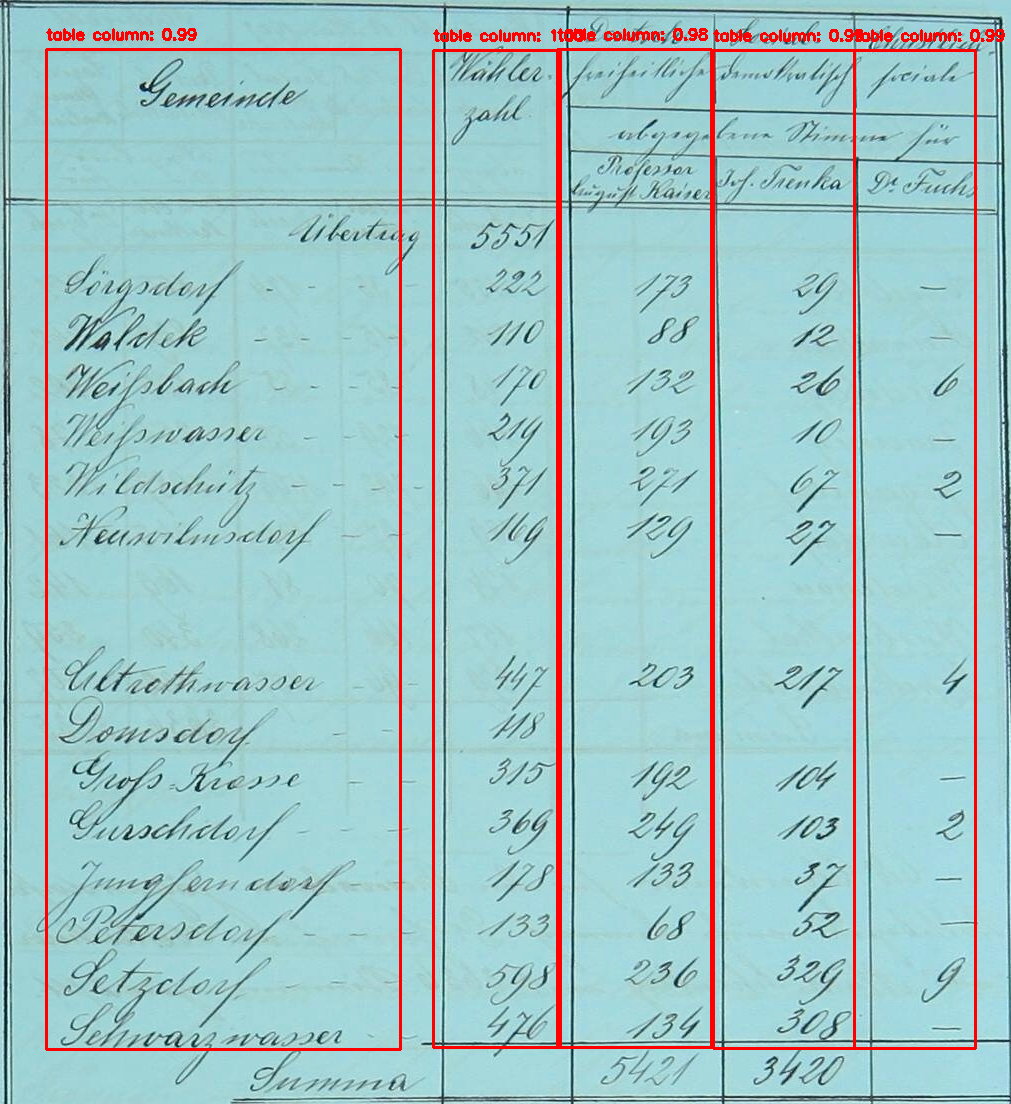 table column: 0.99 table column: 1.00 table column: 0.98 table column: 0.99 table column: 0.99
Gemeinde Wähler- freiheitliche demokratisch sociale
zahl
abgegebene Stimme für
Professor
August Kaiser Joh. Trenka Dr. Fuchs
Übertrag 5551
Sörgsdorf - - - - 222 173 29 —
Waldek - - - - 110 88 12 —
Weißbach - - - 170 132 26 6
Weißwasser - - - 219 193 10 —
Wildschütz - - - - 371 271 67 2
Neuwilmsdorf - - 169 129 27 —
Altrothwasser - - 447 203 217 4
Domsdorf - - 118
Groß-Krosse - - 315 192 104 —
Gurschdorf - - - 369 249 103 2
Jungferndorf - 178 133 37 —
Petersdorf - - - 133 68 52 —
Setzdorf - - - - 598 236 329 9
Schwarzwasser - - 476 134 308 —
Summa 5421 3420